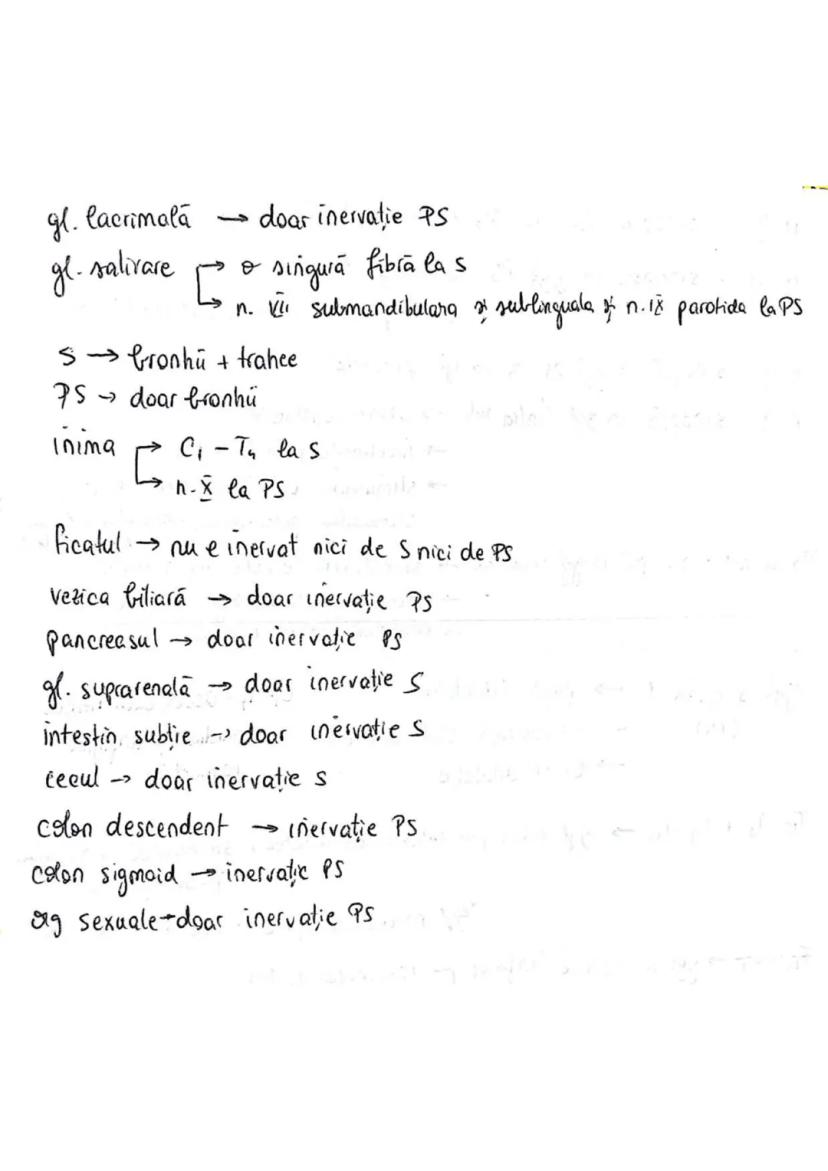 gl. lacrimală → doar inervație PS
gl. salivare → o singură fibră la S
→ n. VII submandibulara și sublinguala și n. IX parotida la PS
S → bronhii + trahee
PS → doar bronhii
inima → C1 - T4 la S
→ n. X la PS
ficatul → nu e inervat nici de S nici de PS
vezica biliară → doar inervație PS
pancreasul → doar inervație PS
gl. suprarenală → doar inervație S
intestin subțire → doar inervație S
cecul → doar inervație S
colon descendent → inervație PS
colon sigmoid → inervație PS
org sexuale → doar inervație PS